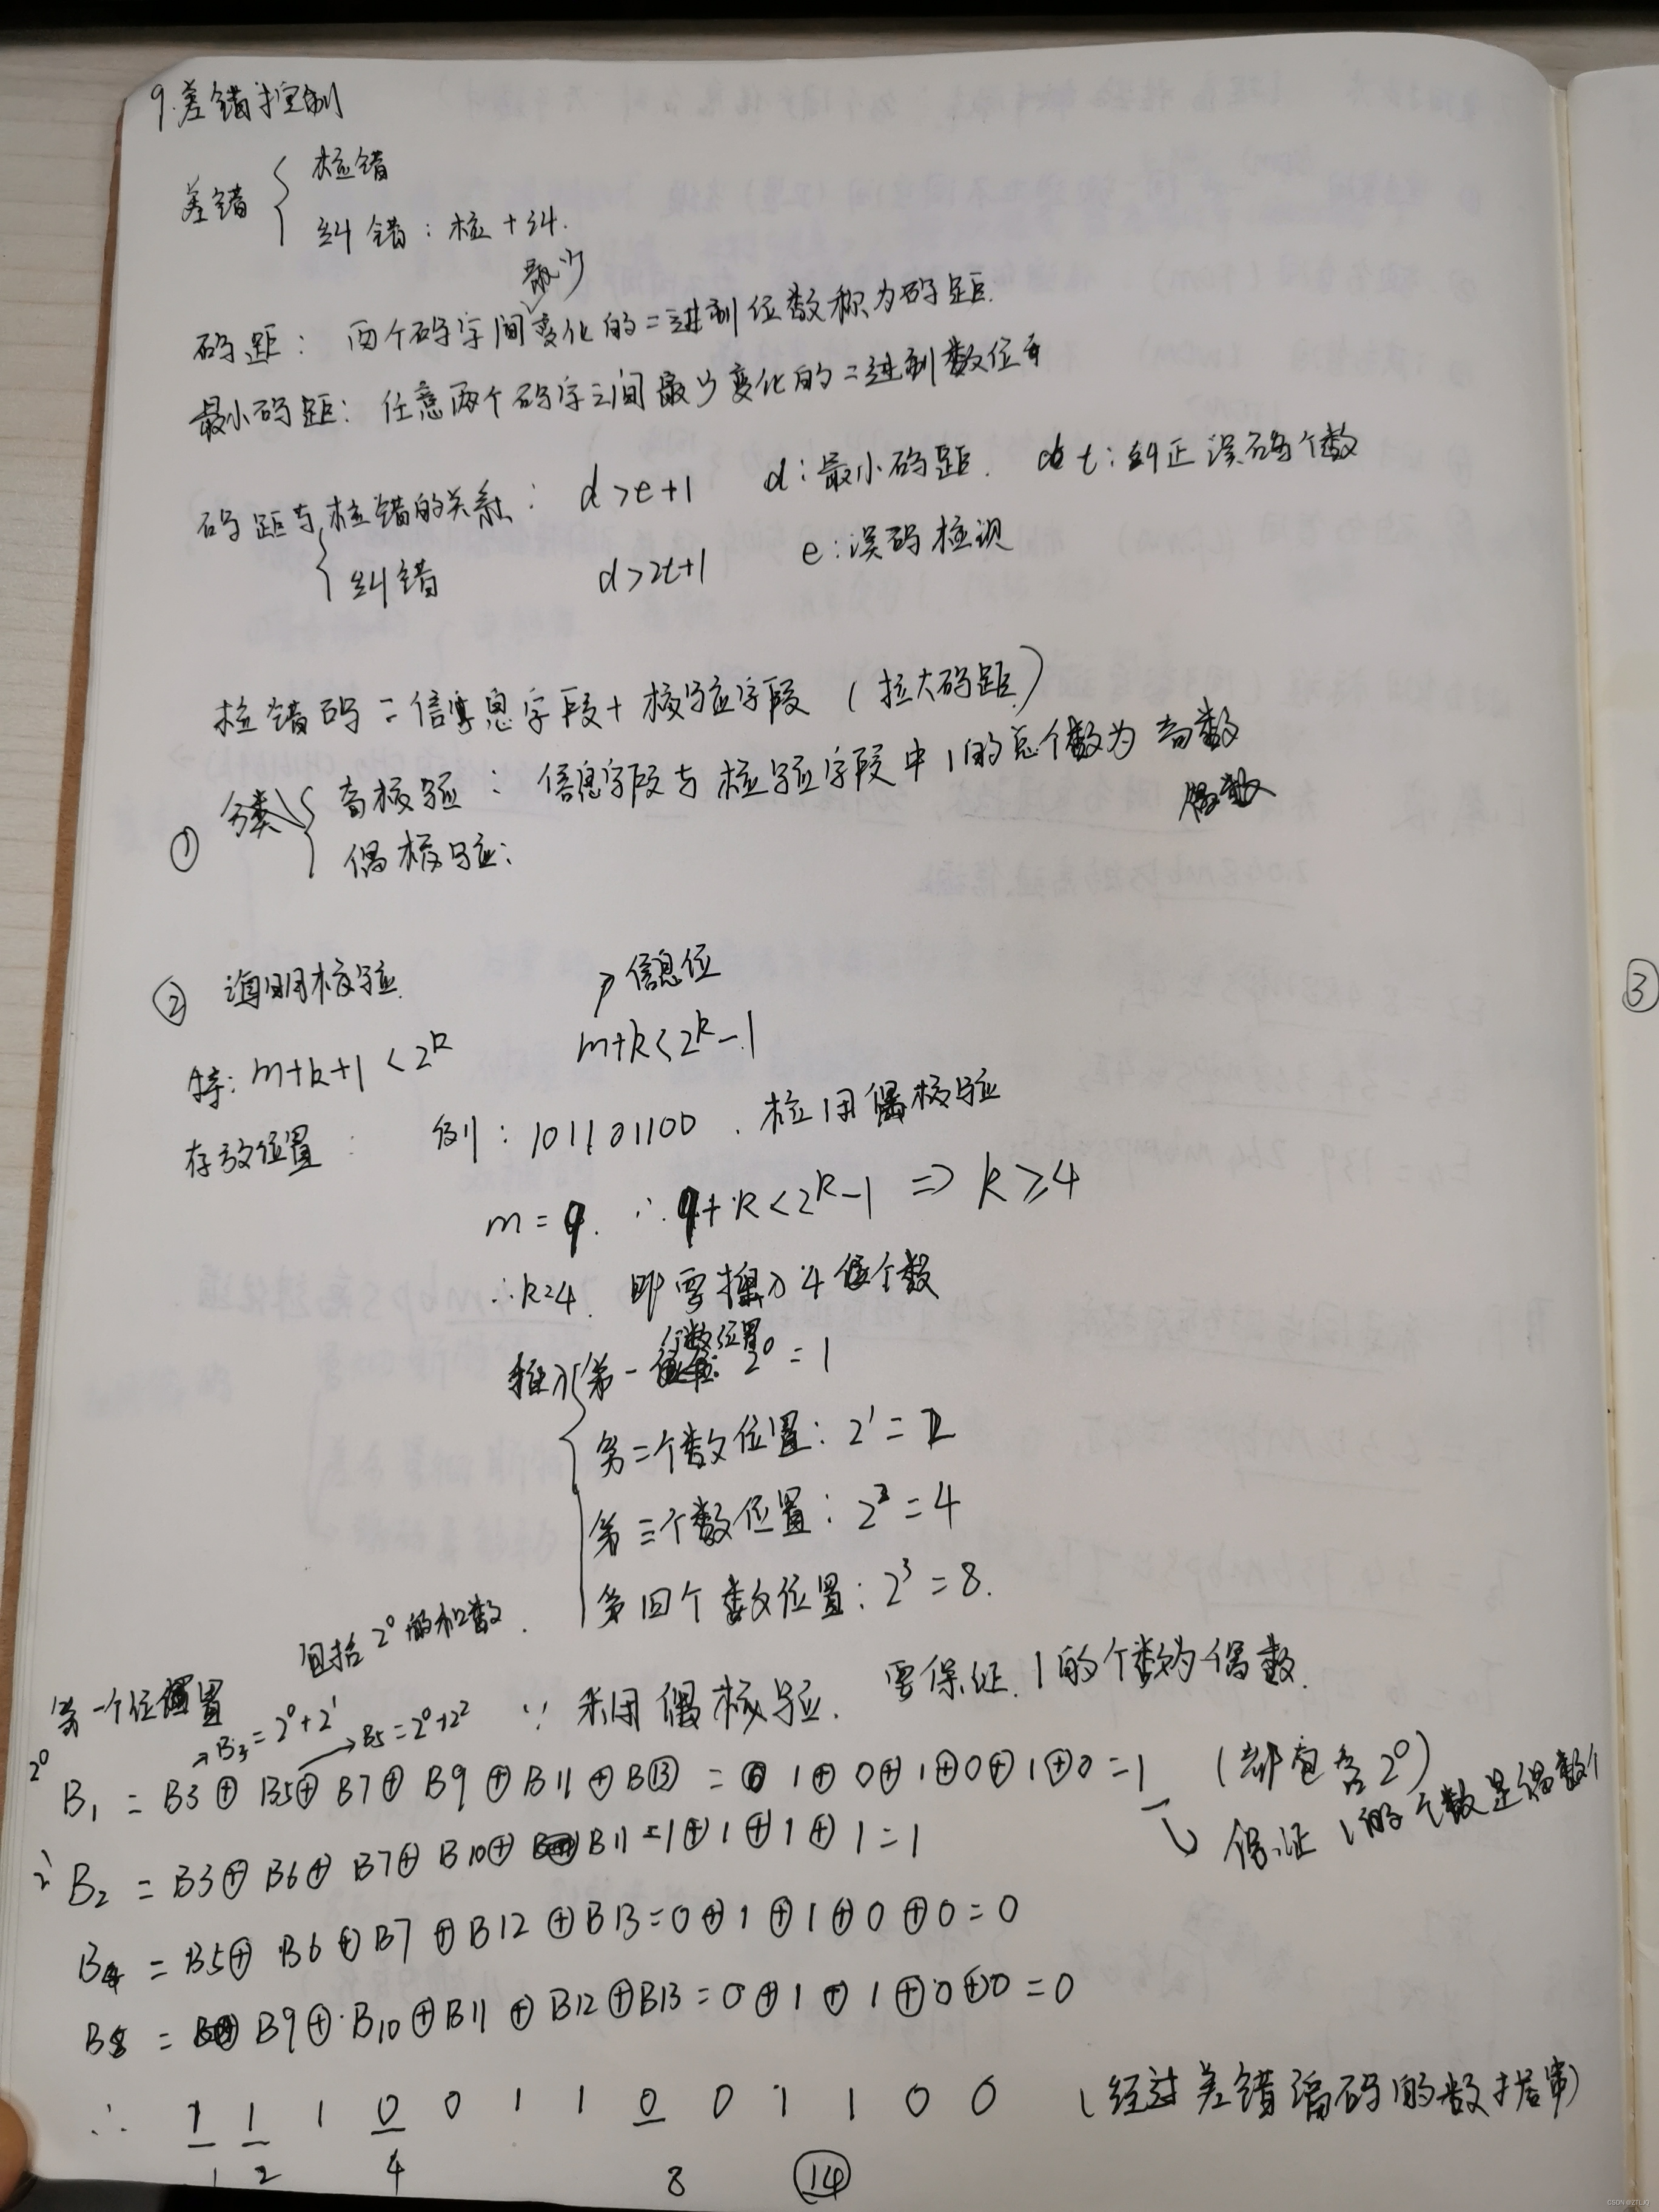 9.差错控制
差错 { 检错
纠错：检+纠.
最少
码距：两个码字间变化的二进制位数称为码距.
最小码距：任意两个码字之间最少变化的二进制数位
码距与检错的关系：d>e+1 d:最小码距. t:纠正误码个数
纠错 d>2t+1 e:误码检现
检错码=信息字段+校验字段（拉大码距）
① 分类 { 奇校验：信息字段与校验字段中1的总个数为奇数
偶数
偶校验：
② 海明校验.
→信息位
特：m+k+1<2^k m+k<2^k-1
存放位置：例：101101100. 检用偶校验
m=9. ∴9+k<2^k-1 ⇒ k≥4
∴k=4. 即要插入4个数
插入{第一个数位置：2^0=1
第二个数位置：2^1=2
第三个数位置：2^2=4
第四个数位置：2^3=8.
包括2^0的和数.
第一个位置
→B3=2^0+2^1 →B5=2^0+2^2 ∵采用偶校验. 要保证1的个数为偶数.
2^0 B1=B3⊕B5⊕B7⊕B9⊕B11⊕B13=1⊕0⊕1⊕0⊕1⊕0=1 （都包含2^0）
保证1的个数是偶数个
2^1 B2=B3⊕B6⊕B7⊕B10⊕B11=1⊕1⊕1⊕1=1
B4=B5⊕B6⊕B7⊕B12⊕B13=0⊕1⊕1⊕0⊕0=0
B8=B9⊕B10⊕B11⊕B12⊕B13=0⊕1⊕1⊕0⊕0=0
∴ 1 1 1 0 0 1 1 0 0 1 1 0 0 （经过差错编码的数据串）
1 2 4 8 ⑭
③
CSDN @ZTLJQ